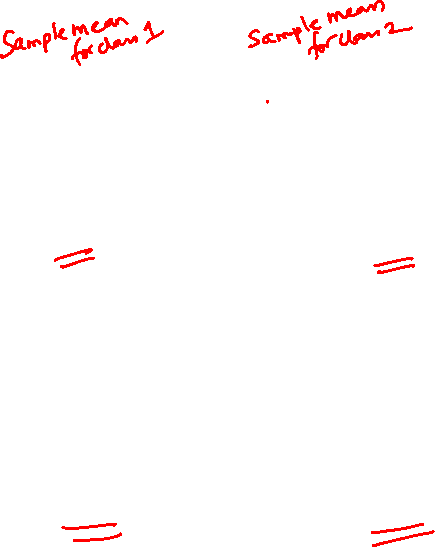 Sample mean
for class 1
Sample mean
for class 2